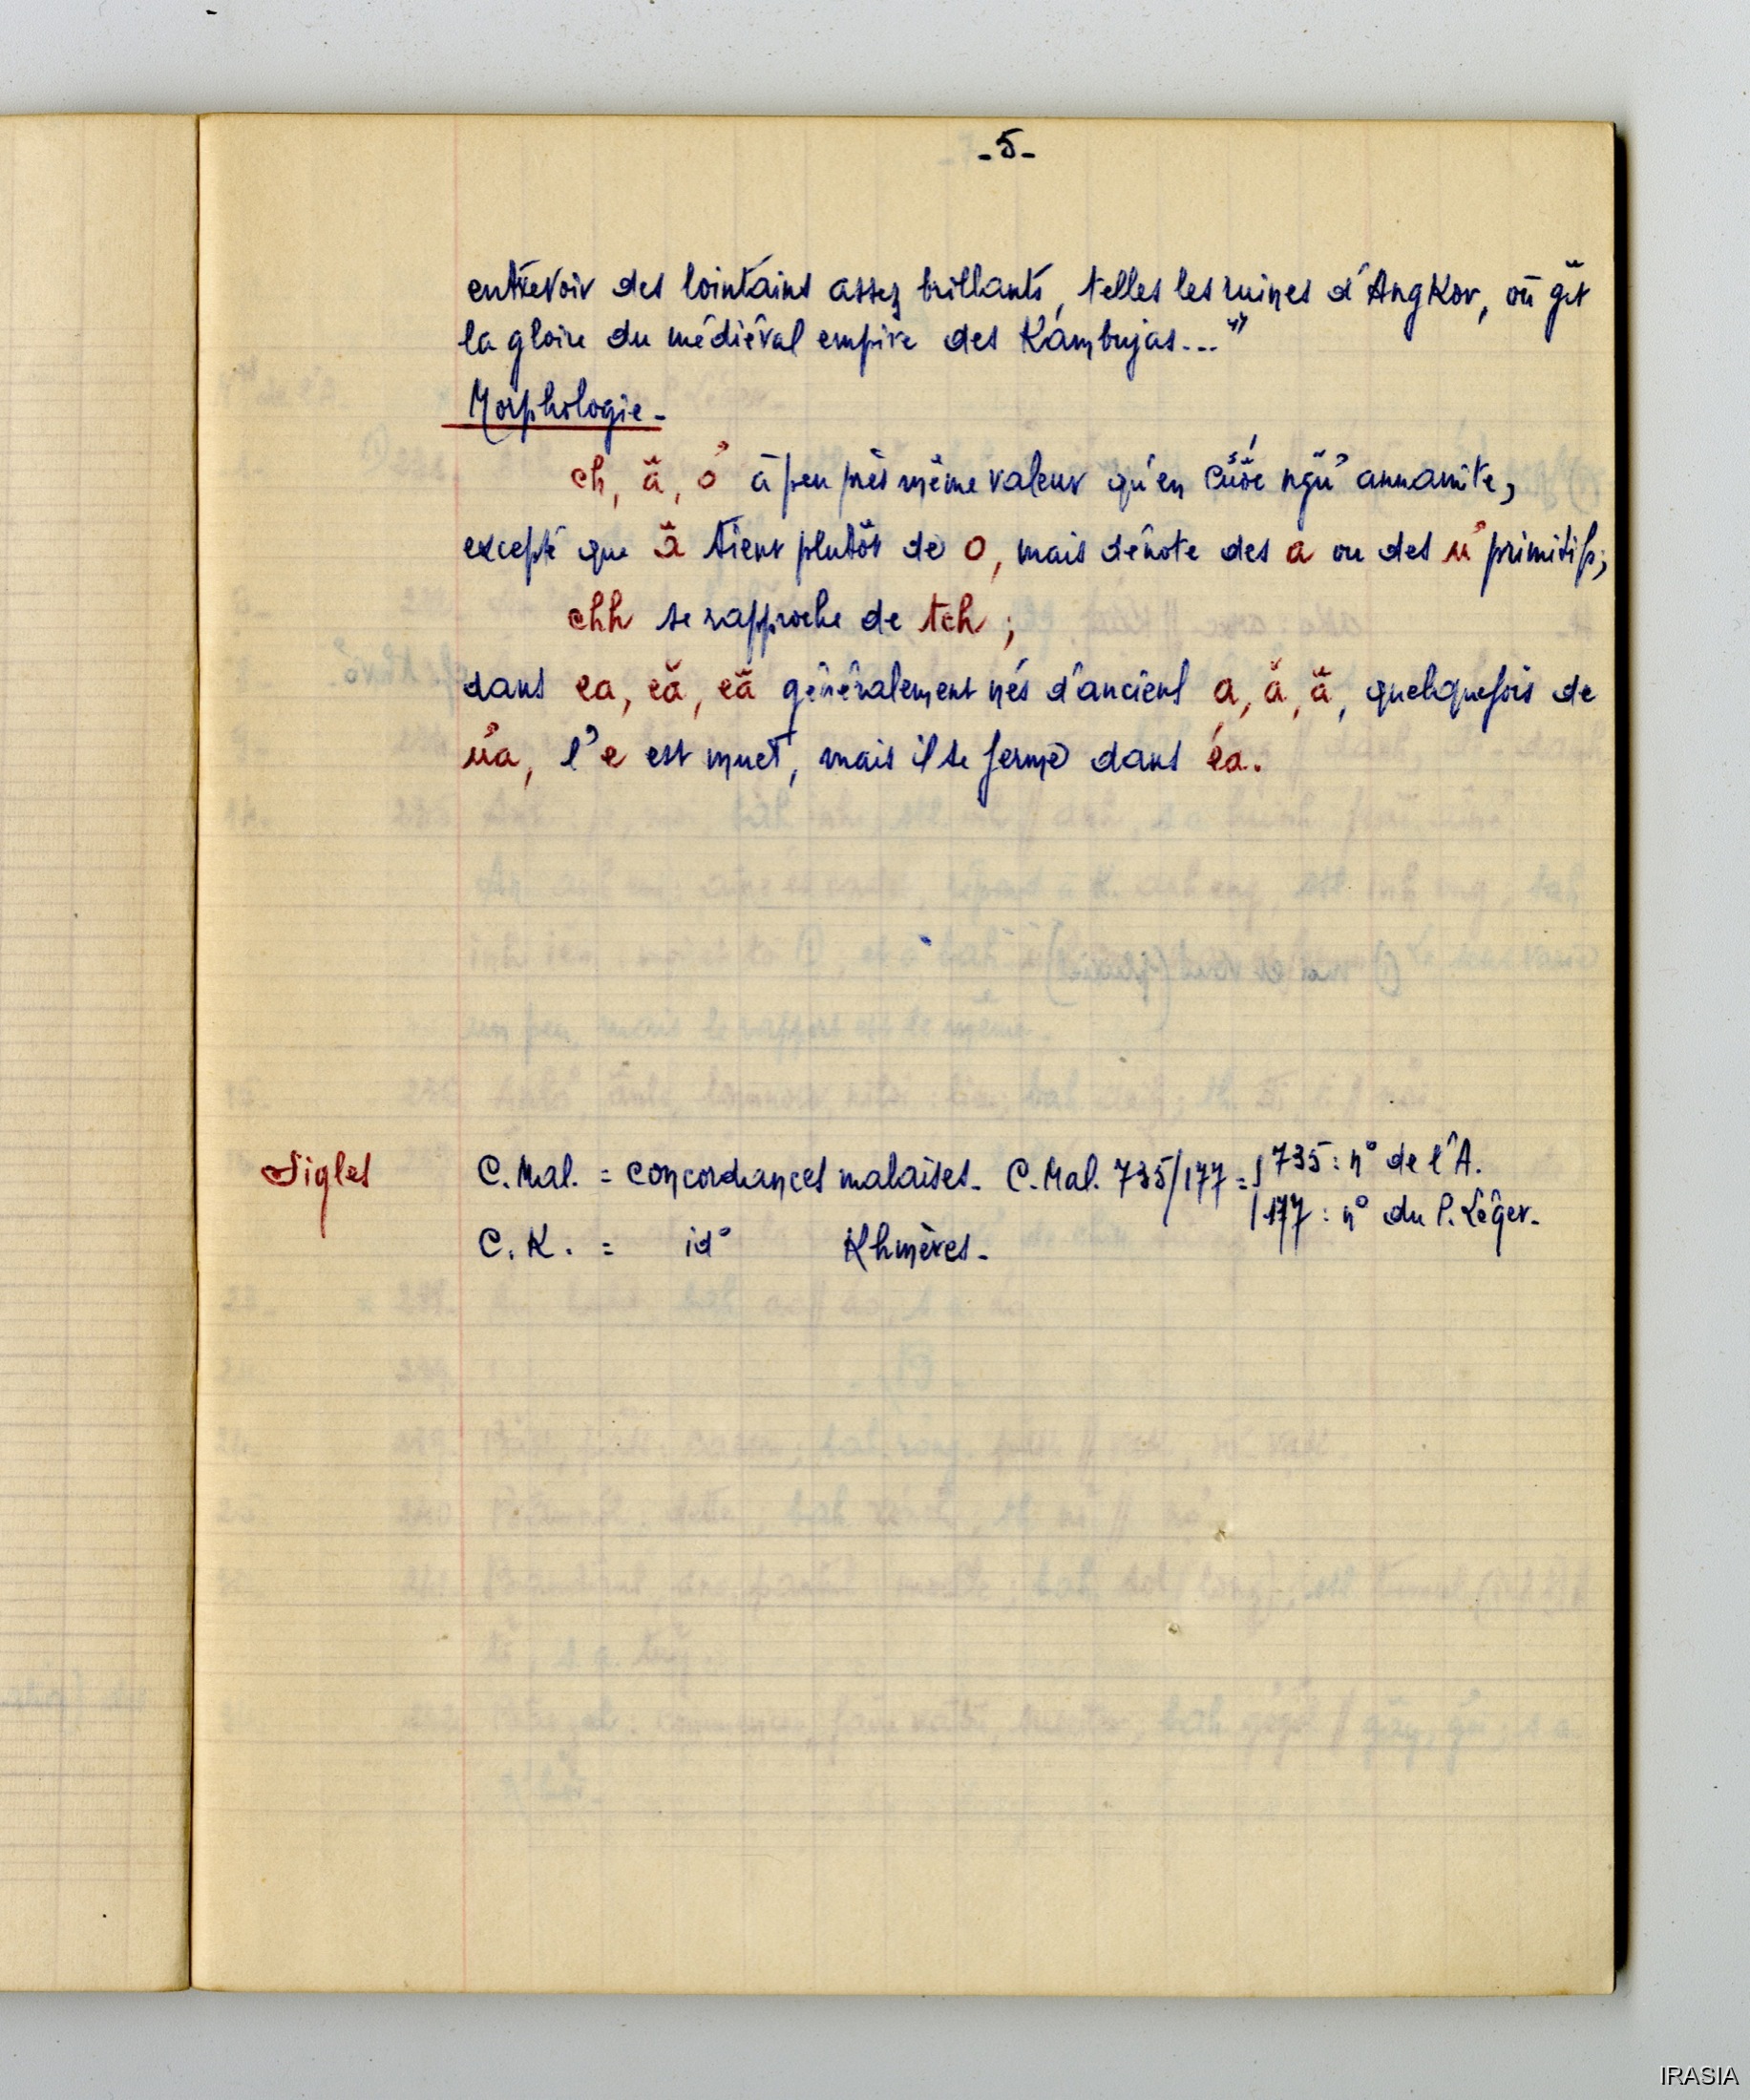 -5-
entrevoir des lointains assez brillants, telles les ruines d'Angkor, où gît
la gloire du médiéval empire des Kámbujas..."
Morphologie-
ch, ă, ơ à peu près même valeur qu'en cuốc ngữ annamite,
excepté que ă tient plutôt de o, mais dénote des a ou des ư primitifs;
chh se rapproche de tch;
dans ea, eă, eă généralement nés d'anciens a, ă, ă, quelquefois de
ưa, l'e est muet, mais il se ferme dans éa.
Sigles C.Mal. = concordances malaises. C.Mal. 735/177 = 735: n° de l'A.
177: n° du P. Léger.
C.K. = id° Khmères.
IRASIA